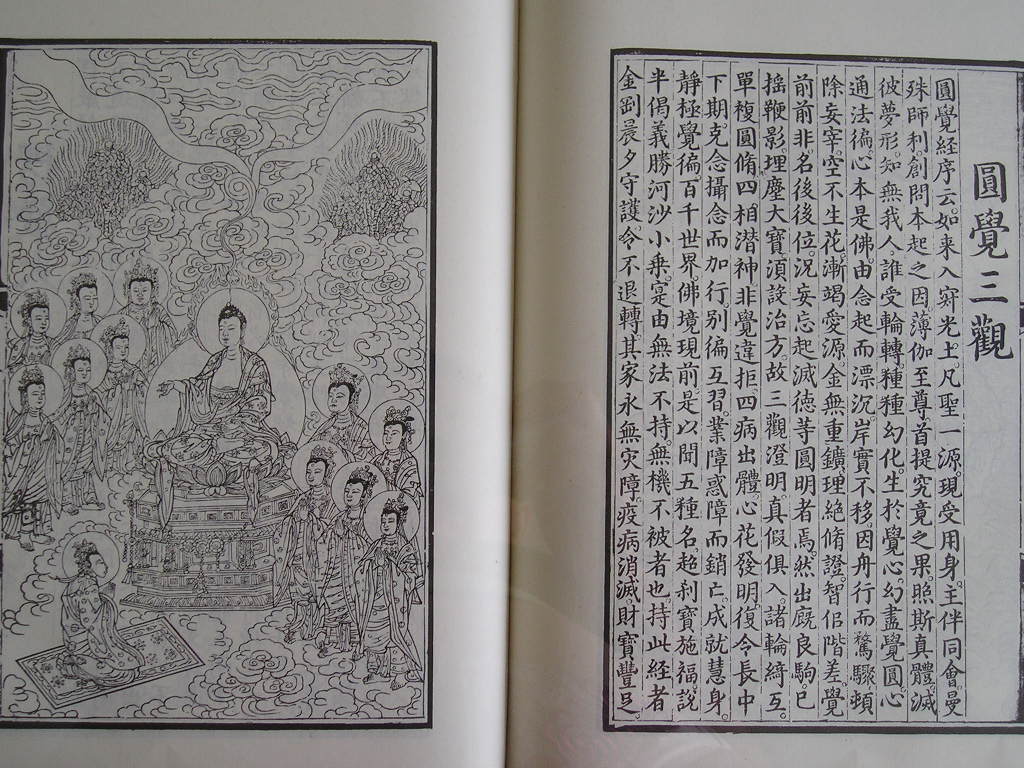 圓覺三觀
圓覺經序云。如来入寂光土。凡聖一源。現受用身。主伴同會。曼
殊師利創問本起之因。薄伽至尊首提究竟之果。照斯真體。滅
彼夢形。知無我人。誰受輪轉。種種幻化。生於覺心。幻盡覺圓。心
通法徧。心本是佛。由念起而漂沉。岸實不移。因舟行而驚驟。頓
除妄宰。空不生花。漸竭愛源。金無重鑛。理絶脩證。智似階差。覺
前前非名後後位。况妄忘起滅。徳等圓明者焉。然出廐良駒。已
摇鞭影。埋塵大寶。須設治方。故三觀澄明。真假俱入。諸輪綺互。
單複圓脩。四相潜神。非覺違拒。四病出體。心花發明。復令長中
下期。克念攝念。而加行别徧互習。業障惑障而銷亡。成就慧身。
静極覺徧。百千世界。佛境現前。是以聞五種名。超刹寶施福。説
半偈義。勝河沙小乗。寔由無法不持。無機不被者也。持此經者
金剛晨夕守護。令不退轉。其家永無灾障。疫病消滅。財寶豐足。